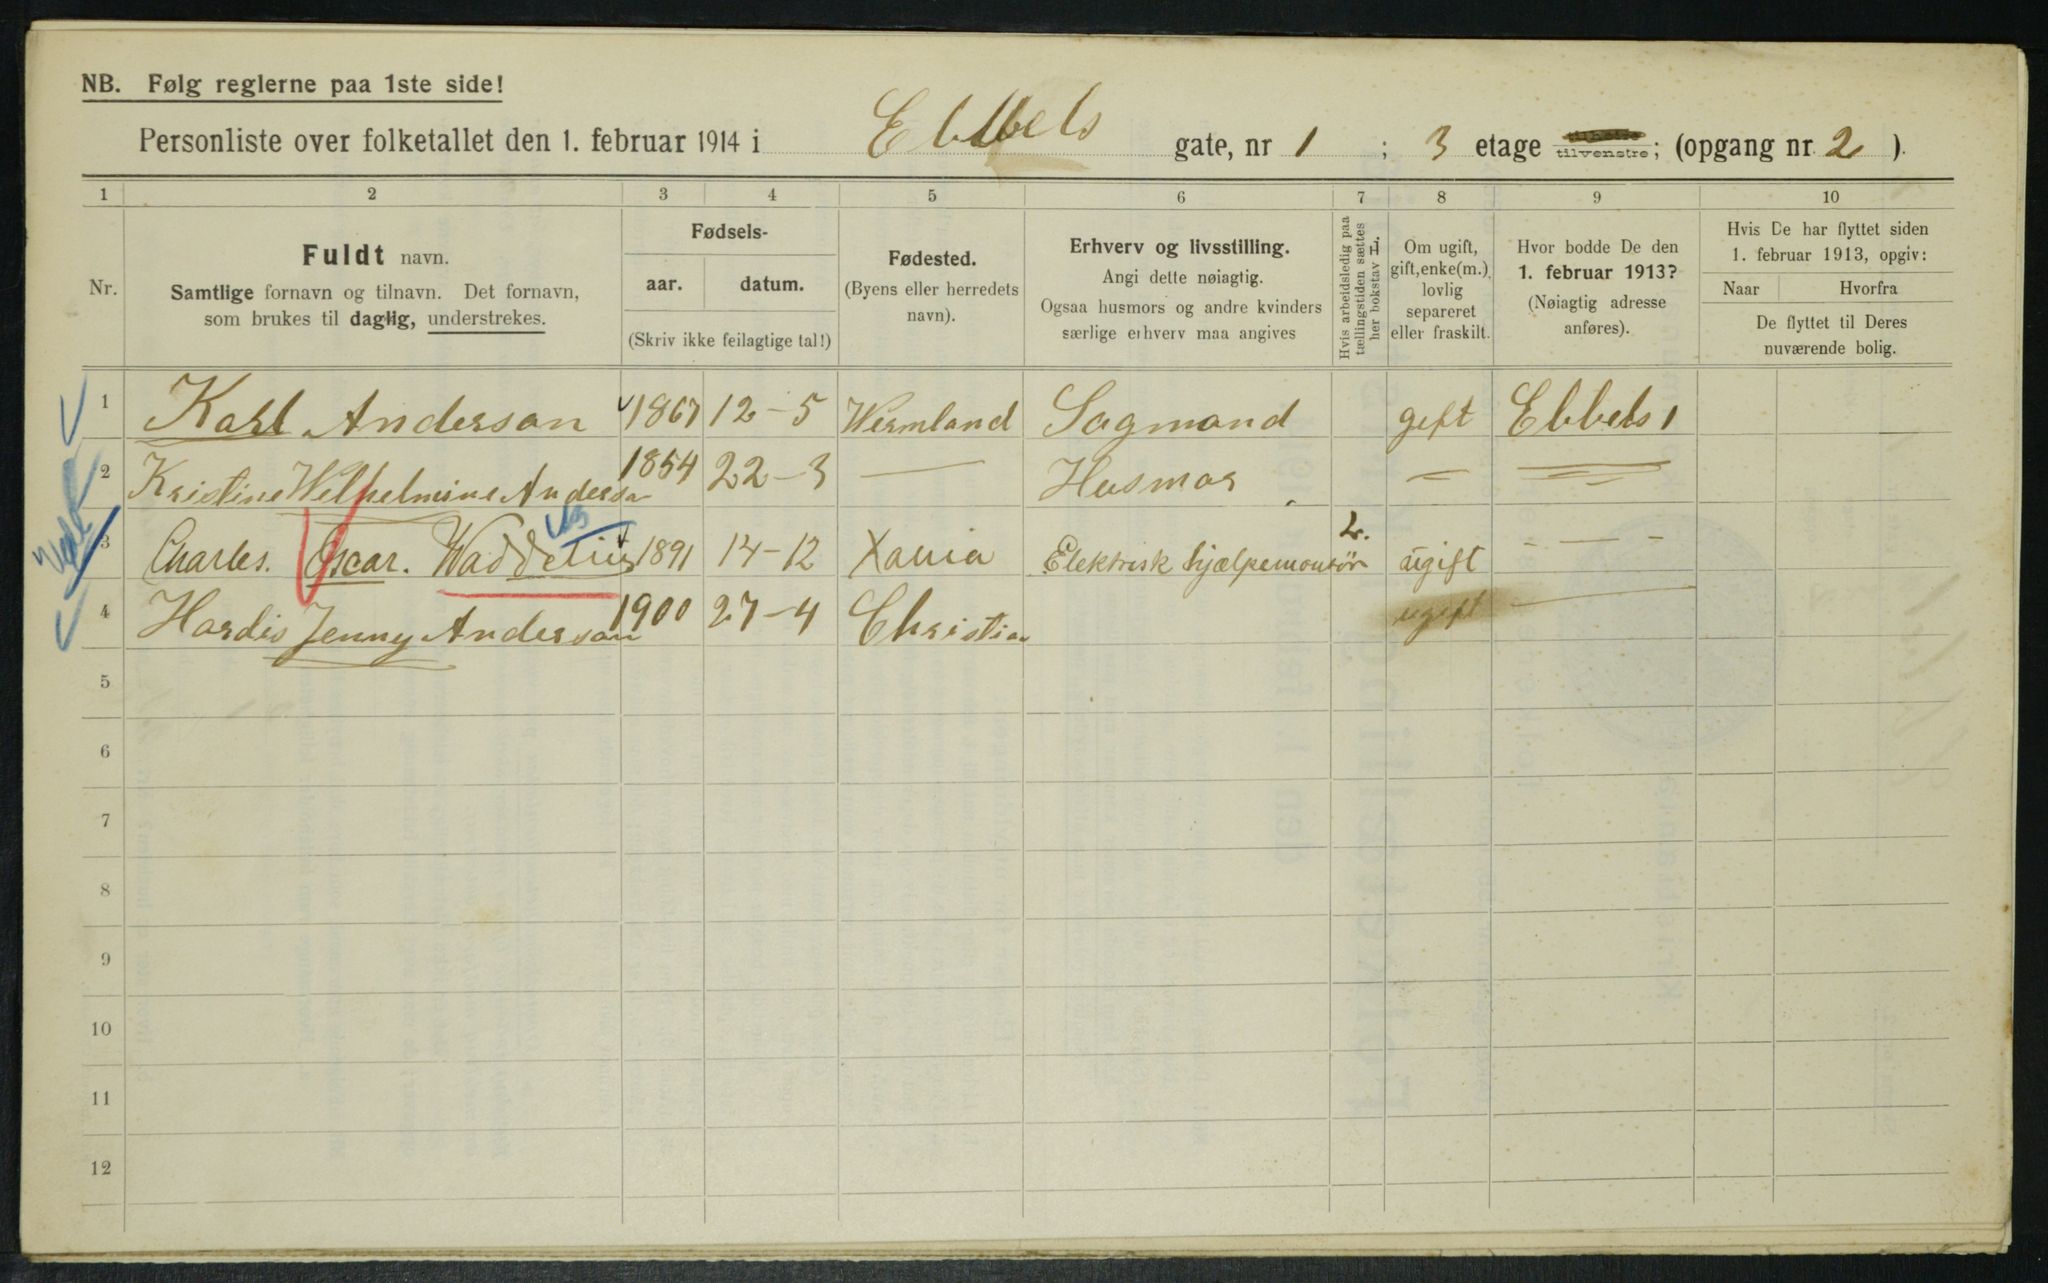 NB. Følg reglerne paa 1ste side!
Personliste over folketallet den 1. februar 1914 i Ebbels gate, nr 1 ; 3 etage tilvenstre; (opgang nr. 2 ).
1 2 3 4 5 6 7 8 9 10
Nr.
Fuldt navn.
Samtlige fornavn og tilnavn. Det fornavn,
som brukes til daglig, understrekes.
Fødsels-
aar. datum.
(Skriv ikke feilagtige tal!)
Fødested.
(Byens eller herredets
navn).
Erhverv og livsstilling.
Angi dette nøiagtig.
Ogsaa husmors og andre kvinders
særlige erhverv maa angives
Hvis arbeidsledig paa
tællingstiden sættes
her bokstav L.
Om ugift,
gift, enke(m.),
lovlig
separeret
eller fraskilt.
Hvor bodde De den
1. februar 1913?
(Nøiagtig adresse
anføres).
Hvis De har flyttet siden
1. februar 1913, opgiv:
Naar Hvorfra
De flyttet til Deres
nuværende bolig.
1 Karl Anderson 1867 12-5 Wermland Sagmand gift Ebbels 1
2 Kristine Wilhelmine Anderso 1854 22-3 — Husmor — —
3 Charles. Oscar. Waddelius 1891 14-12 Xania Elektrisk hjælpemontør L. ugift - — -
4 Hordis Jenny Anderson 1900 27-4 Christia ugift —
5
6
7
8
9
10
11
12